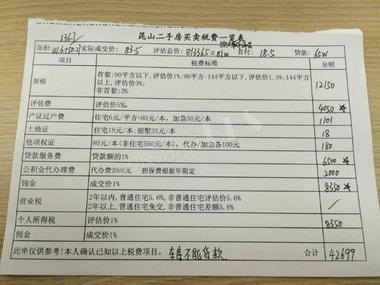 昆山二手房买卖税费一览表
面积: 实际成交价: 83.5 评估总价: 813365=81W 首付: 18.5 贷款: 65W
税费标准 金额
契税 首套:90平方以下, 评估价1%;90平方-144平方, 评估价1.5%;144平方以上, 评估价3%; 非首套:3% 12150
评估费 评估价5‰ 4050
产证过户费 住宅6元/平方+80元/本, 加急50元/本 1101
土地证 住宅18元/本;别墅35元/本 18
他项权证 80元/本(非住宅550元/本), 代办/加急各100元 180
贷款服务费 贷款额的1% 6500
公积金代办理费 代办费2000元 / 担保费根据年限定 2000
佣金 成交价1% 8350
营业税 2年以内, 普通住宅5.6%, 非普通住宅评估价5.6%
2年以上, 普通住宅免交, 非普通住宅差额5.6% /
个人所得税 评估价1% 8350
佣金 成交价1%
此单仅供参考!本人确认已知以上税费项目。 车库不能贷款 合计 42699